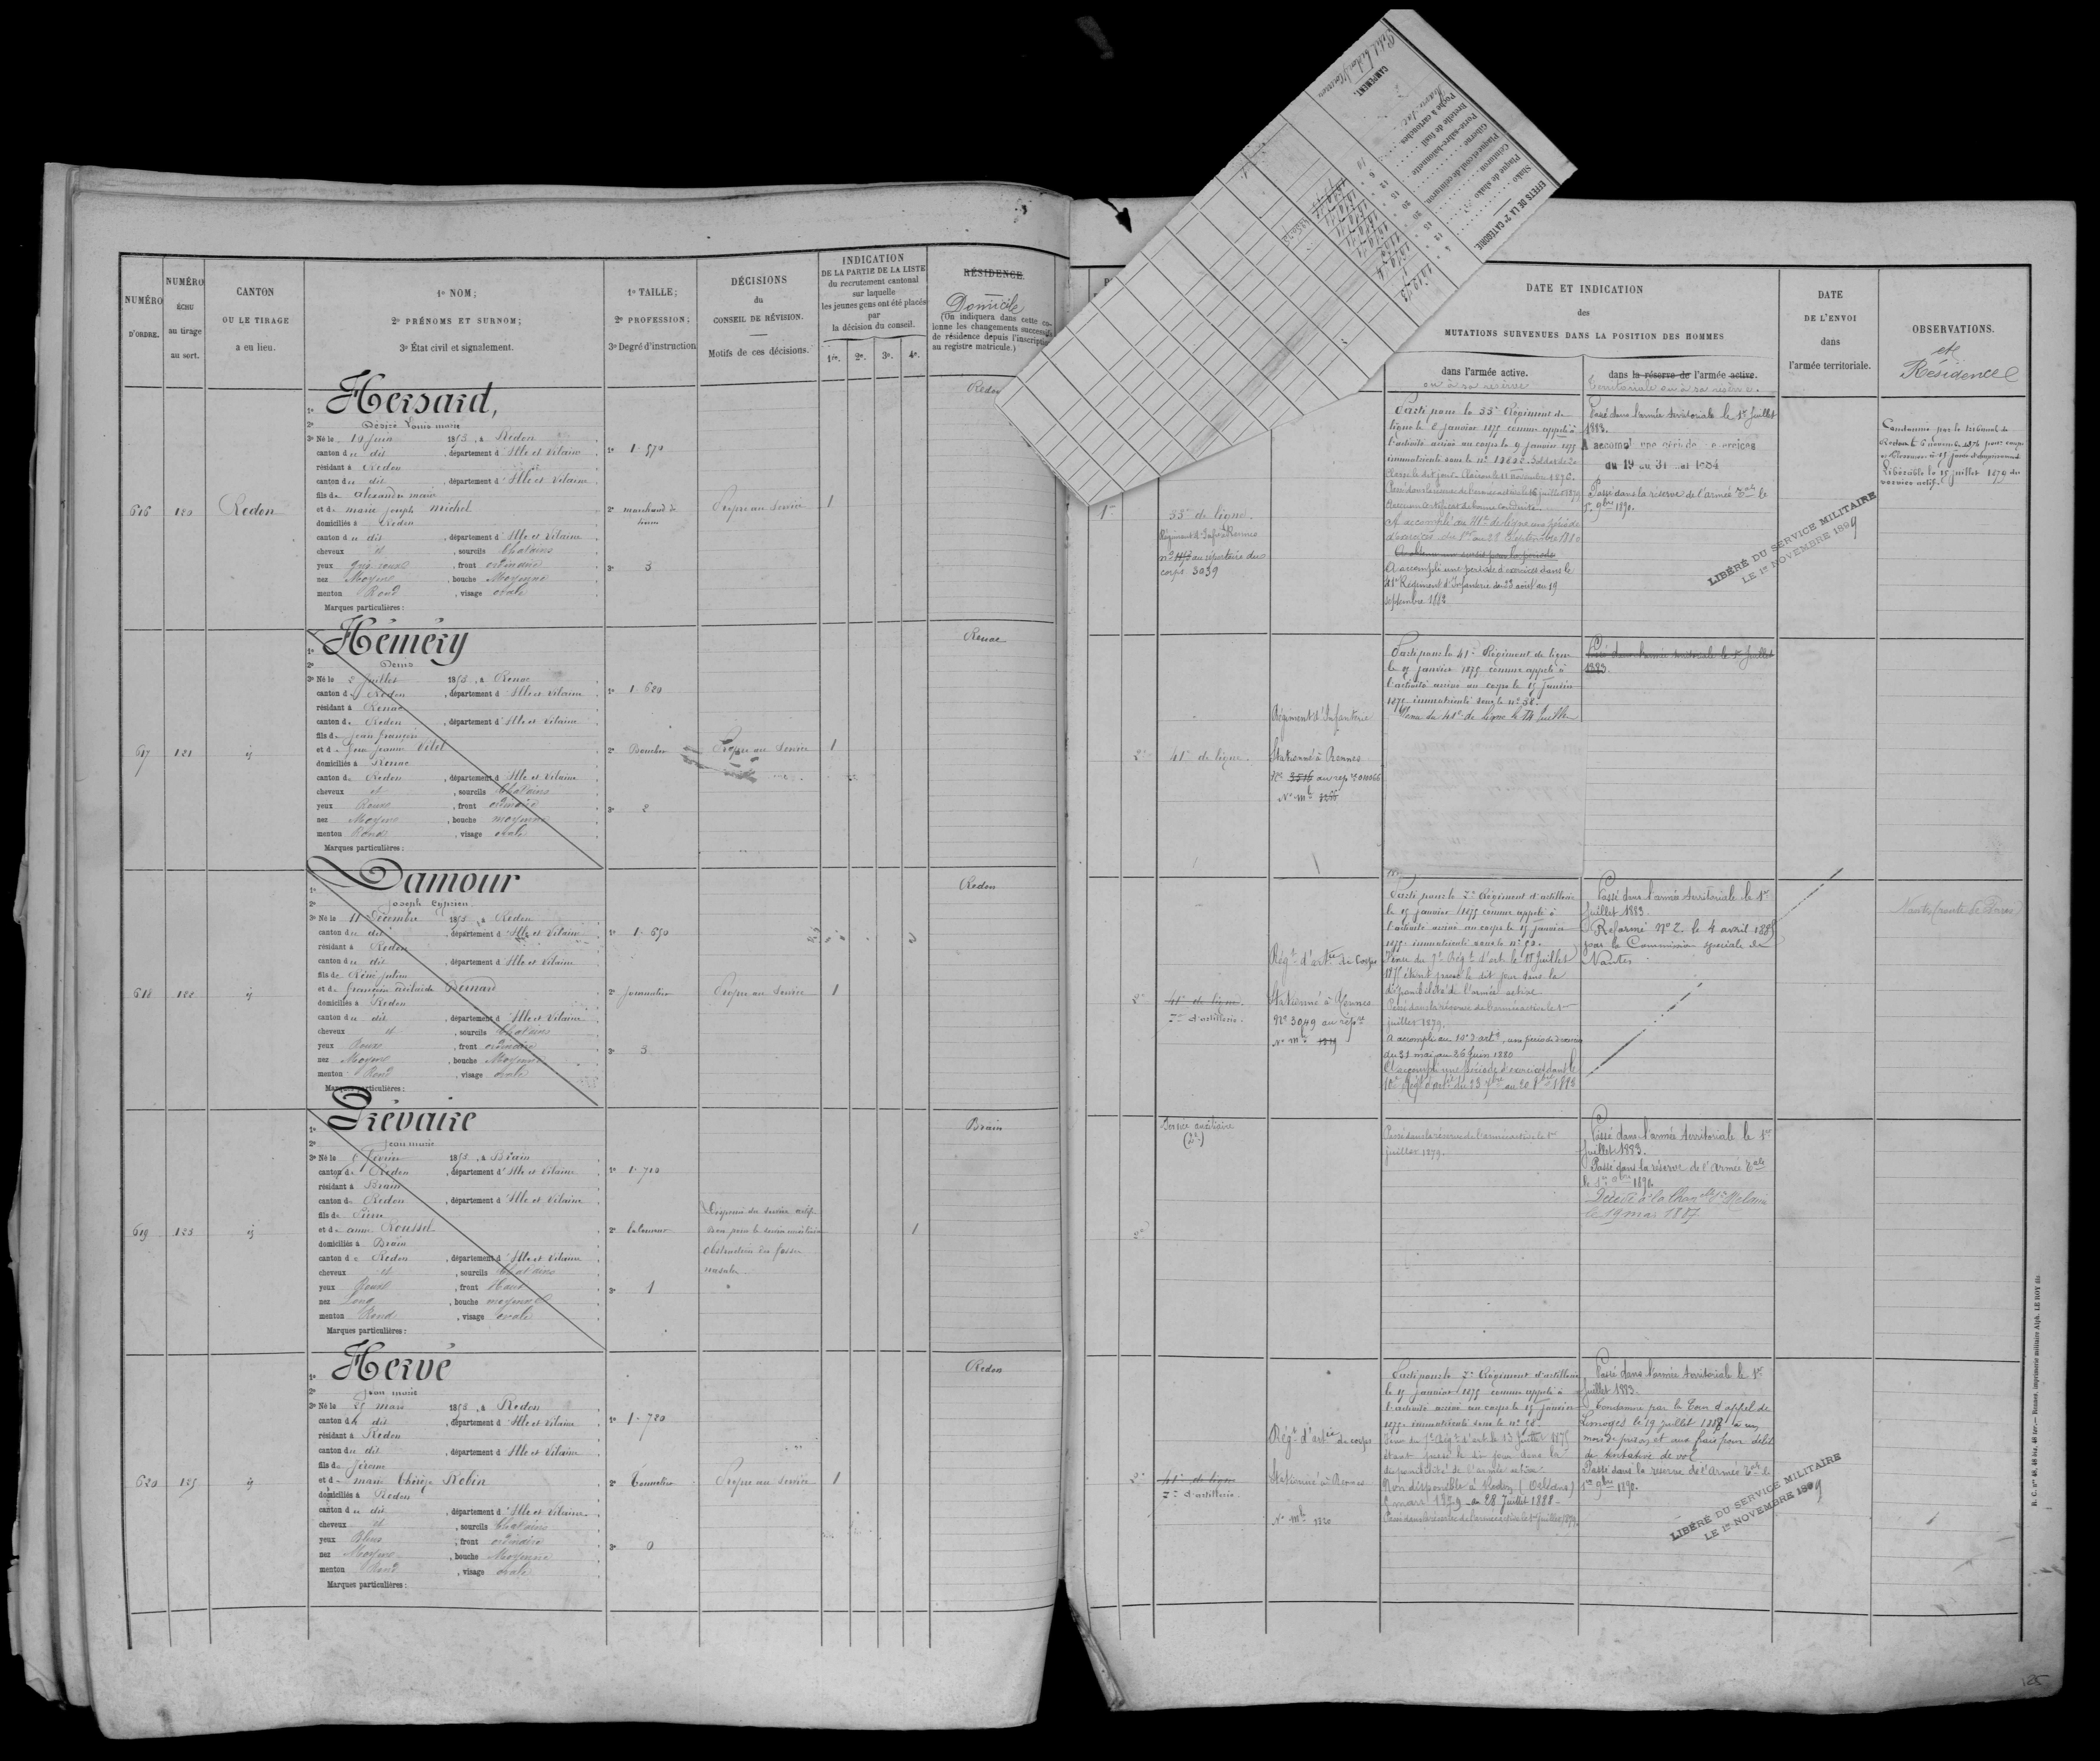 NUMÉRO
D'ORDRE.
NUMÉRO
ÉCHU
au tirage
au sort.
CANTON
OU LE TIRAGE
a eu lieu.
1º NOM;
2º PRÉNOMS ET SURNOM;
3º État civil et signalement.
1º TAILLE;
2º PROFESSION;
3º Degré d'instruction
DÉCISIONS
du
CONSEIL DE RÉVISION.
Motifs de ces décisions.
INDICATION
DE LA PARTIE DE LA LISTE
du recrutement cantonal
sur laquelle
les jeunes gens ont été placés
par
la décision du conseil.
1re. 2e. 3e. 4e.
RÉSIDENCE.
Domicile
(On indiquera dans cette co-
lonne les changements successifs
de résidence depuis l'inscription
au registre matricule.)
616
120
Redon
1º Hersard,
2º Désiré Louis marie
3º Né le 19 Juin 1853, à Redon
canton du dit, département d'Ille et Vilaine
résidant à Redon
canton du dit, département d'Ille et Vilaine
fils de alexandre marie
et de marie joseph michel
domiciliés à Redon
canton du dit, département d'Ille et Vilaine
cheveux et, sourcils Chatains
yeux gris roux, front ordinaire
nez Moyen, bouche Moyenne
menton Rond, visage ovale
Marques particulières:
1º 1.570
2º marchand de
3º 3
Propre au service
1
Redon
617
121
ij
1º Héméry
2º Denis
3º Né le 2 Juillet 1853, à Renac
canton de Redon, département d'Ille et Vilaine
résidant à Renac
canton de Redon, département d'Ille et Vilaine
fils de Jean françois
et de Jeanne Vitel
domiciliés à Renac
canton de Redon, département d'Ille et Vilaine
cheveux et, sourcils Chatains
yeux Roux, front ordinaire
nez Moyen, bouche moyenne
menton Rond, visage ovale
Marques particulières:
1º 1.620
2º Boucher
3º 2
Propre au service
1
Renac
618
122
ij
1º Damour
2º Joseph Cyprien
3º Né le 11 Décembre 1853, à Redon
canton du dit, département d'Ille et Vilaine
résidant à Redon
canton du dit, département d'Ille et Vilaine
fils de Réné julien
et de françoise adelaide Bernard
domiciliés à Redon
canton du dit, département d'Ille et Vilaine
cheveux et, sourcils Chatains
yeux Roux, front ordinaire
nez Moyen, bouche Moyenne
menton Rond, visage ovale
Marques particulières:
1º 1.650
2º Journalier
3º 3
Propre au service
1
Redon
619
123
ij
1º Prévaire
2º Jean marie
3º Né le 6 Février 1853, à Brain
canton de Redon, département d'Ille et Vilaine
résidant à Brain
canton de Redon, département d'Ille et Vilaine
fils de Pierre
et de anne Roussel
domiciliés à Brain
canton de Redon, département d'Ille et Vilaine
cheveux et, sourcils Chatains
yeux Roux, front Haut
nez Long, bouche moyenne
menton Rond, visage ovale
Marques particulières:
1º 1.710
2º laboureur
3º 1
Dispensé du service actif
bon pour le service auxiliaire
obstruction des fosses
nasales
1
Brain
620
125
ij
1º Hervé
2º Jean marie
3º Né le 25 mars 1853, à Redon
canton du dit, département d'Ille et Vilaine
résidant à Redon
canton du dit, département d'Ille et Vilaine
fils de Jérome
et de marie thérèse Robin
domiciliés à Redon
canton du dit, département d'Ille et Vilaine
cheveux et, sourcils Chatains
yeux Bleus, front ordinaire
nez Moyen, bouche Moyenne
menton Rond, visage ovale
Marques particulières:
1º 1.720
2º Tonnelier
3º 0
Propre au service
1
Redon
EFFETS DE LA 2e CATÉGORIE
Shako
Plaque de shako
Ceinturon
Plaque et coul de ceinturon
Giberne
Porte-sabre-baïonnette
Bretelle de fusil
Poche à cartouches
CAMPEMENT.
DATE ET INDICATION
des
MUTATIONS SURVENUES DANS LA POSITION DES HOMMES
dans l'armée active.
ou à sa réserve
dans la réserve de l'armée active.
Territoriale ou à sa réserve.
DATE
DE L'ENVOI
dans
l'armée territoriale.
OBSERVATIONS.
et
Résidence
1º
33e de ligne.
Régiment d'Infie à Rennes
nº 1143 au répertoire du
corps 3039
Parti pour le 33e Régiment de
ligne le 2 janvier 1875 comme appelé à
l'activité arrivé au corps le 9 janvier 1875
immatriculé sous le nº 1980 C. Soldat de 2e
Classe le dit jour. Clairon le 11 novembre 1876.
Passé dans la réserve de l'armée active le 16 juillet 1879
Aucun certificat de bonne conduite
A accompli au 41e de ligne une période
d'exercices du 1er au 28 Septembre 1880
A accompli une période d'exercices dans le
41e Régiment d'Infanterie du 23 août au 19
septembre 1882
Passé dans l'armée territoriale le 1er Juillet
1883.
A accompli une période d'exercices
du 19 au 31 mai 1884
Passé dans la réserve de l'armée Tale le
1er 9bre 1890.
LIBÉRÉ DU SERVICE MILITAIRE
LE 1er NOVEMBRE 1899
Condamné par le tribunal de
Redon le 6 novembre 1876 pour coups
et blessures à 15 jours d'emprisonnement
Libérable le 15 juillet 1879 du
service actif.
2e
41e de ligne.
Régiment d'Infanterie
Stationné à Rennes
Nº 3516 au repre
Nº mle
Parti pour le 41e Régiment de ligne
le 15 janvier 1875 comme appelé à
l'activité arrivé au corps le 15 janvier
1875 immatriculé sous le nº 38.
Venu du 41e de ligne le 14 Juillet
Passé dans l'armée territoriale le 1er Juillet
1883.
2e
41e de ligne.
7e d'artillerie.
Régt d'artie de Corps
Stationné à Rennes
Nº 3049 au repre
Nº mle 1819
Parti pour le 7e Régiment d'artillerie
le 15 janvier 1875 comme appelé à
l'activité arrivé au corps le 15 janvier
1875 immatriculé sous le nº 52.
Venu du 7e Régt d'art. le 17 Juillet
1875 étant passé le dit jour dans la
disponibilité de l'armée active
Passé dans la réserve de l'armée active le 1er
juillet 1879.
A accompli au 10e d'artie, une période d'exercices
du 31 mai au 26 Juin 1880
A accompli une période d'exercices dans le
10e Régt d'artie du 23 7bre au 20 8bre 1883
Passé dans l'armée territoriale le 1er
Juillet 1883.
Réformé Nº 2. le 4 avril 1885
par la Commission spéciale de
Nantes.
Nantes, route de Paris
Service auxiliaire
(2e)
2e
Passé dans la réserve de l'armée active le 1er
juillet 1879.
Passé dans l'armée territoriale le 1er
Juillet 1883.
Passé dans la réserve de l'Armée Tale
le 1er 9bre 1890
Décédé à la Chapelle Ste Melaine
le 19 mai 1887
2e
41e de ligne
7e d'artillerie.
Régt d'artie de corps
Stationné à Rennes
Nº mle 1820
Parti pour le 7e Régiment d'artillerie
le 15 janvier 1875 comme appelé à
l'activité arrivé au corps le 15 janvier
1875 immatriculé sous le nº 58.
Venu du 7e Régt d'art. le 13 Juillet 1875
étant passé le dit jour dans la
disponibilité de l'armée active.
Non disponible à Redon (Orléans)
5 mars 1879 au 28 Juillet 1881
Passé dans la réserve de l'armée active le 1er juillet 1879.
Passé dans l'armée territoriale le 1er
Juillet 1883.
Condamné par la Cour d'appel de
Limoges le 19 juillet 1888 à un
mois de prison et aux frais pour délit
de tentative de vol
Passé dans la réserve de l'Armée Tale le
1er 9bre 1890.
LIBÉRÉ DU SERVICE MILITAIRE
LE 1er NOVEMBRE 1899
125